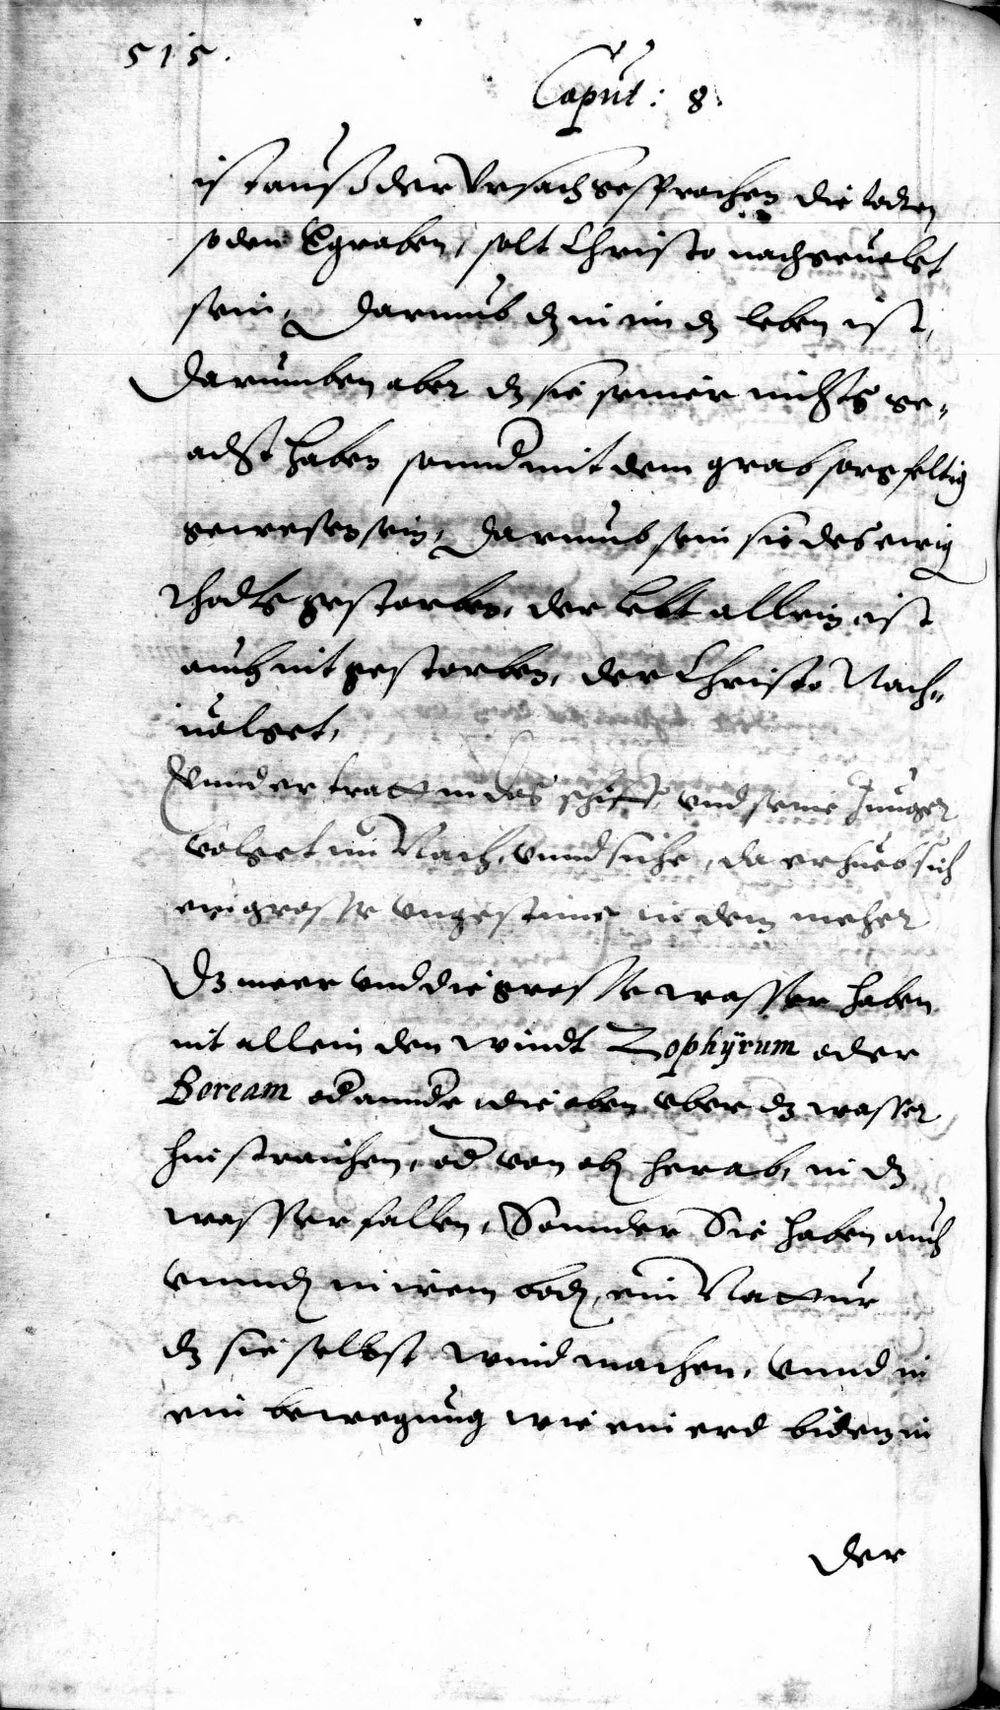 515.
Caput: 8.
ist auß der Vrsach gesprochen die todten
so den begraben, solt Christo nachgeuolgt
sein, Darumb dz in im dz leben ist,
Darumben aber dz sie seiner nichts ge-
acht haben sonnd mit dem grab sorgfeltig
gewesen sein, Darumb sein sie des ewig
thodts gestorben, der lebt allein ist
auch nit gestorben, der Christo Nach-
uolget,
Vnnd er tratt in das schiff, vnd seine Junger
volget im Nach, vnnd sihe, da erhueb sich
ein grosse vngestime in dem meher
Dz meer vnd die grosse wasser haben
nit allein den windt Zephÿrum oder
Boream od annde die oben vber dz wasser
hin straichen, od von ob herab, in dz
wasser fallen, Sonnder Sie haben auch
vnnd in irem bod, ein Nattur
dz sie selbst wind machen, vnnd in
ein bewegung wie ein erd bidem in
der